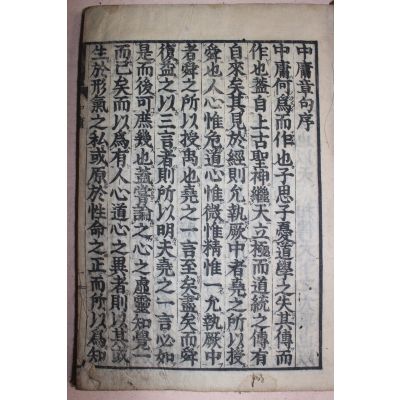 中庸章句序
中庸何爲而作也子思子憂道學之失其傳而
作也蓋自上古聖神繼天立極而道統之傳有
自來矣其見於經則允執厥中者堯之所以授
舜也人心惟危道心惟微惟精惟一允執厥中
者舜之所以授禹也堯之一言至矣盡矣而舜
復益之以三言者則所以明夫堯之一言必如
是而後可庶幾也蓋嘗論之心之虛靈知覺一
而已矣而以爲有人心道心之異者則以其或
生於形氣之私或原於性命之正而所以爲知